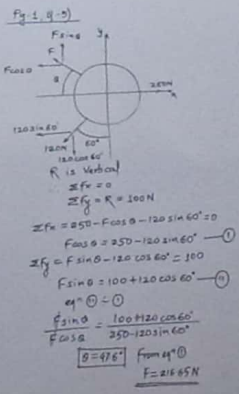 Fig. 1, Q-3)
Fsinθ
y
F
Fcosθ
θ
250N
x
120sin60°
60°
120N
120cos60°
R is Vertical
Σfx = 0
Σfy = R = 100N
Σfx = 250 - Fcosθ - 120 sin 60° = 0
Fcosθ = 250 - 120 sin 60° — ①
Σfy = F sinθ - 120 cos 60° = 100
F sinθ = 100 + 120 cos 60° — ②
eqⁿ ② ÷ ①
Fsinθ / Fcosθ = 100 + 120 cos 60° / 250 - 120 sin 60°
θ = 47.6° from eqⁿ ①
F = 216.65 N